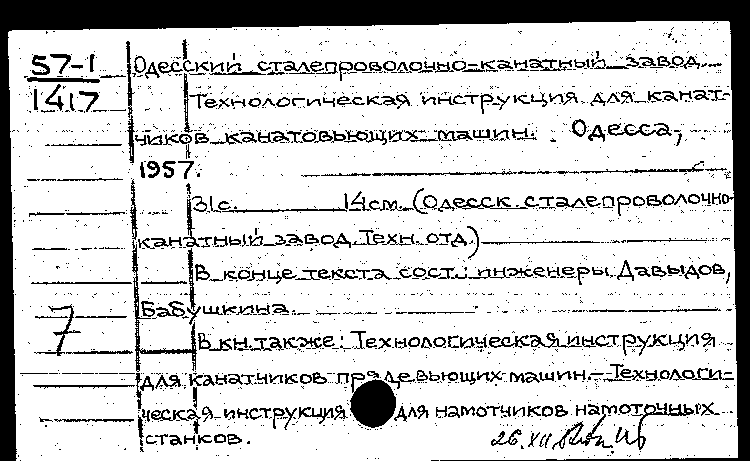 57-1
1417
Одесский сталепроволочно-канатный завод.
Технологическая инструкция для канат-
чиков канатовьющих машин. Одесса,
1957.
31с. 14см. (Одесск. сталепроволочно-
канатный завод. Техн. отд.)
В конце текста сост.: инженеры Давыдов,
Бабушкина.
7
В кн. также: Технологическая инструкция
для канатчиков прядевьющих машин. – Технологи-
ческая инструкция для намотчиков намоточных
станков.
26.XII